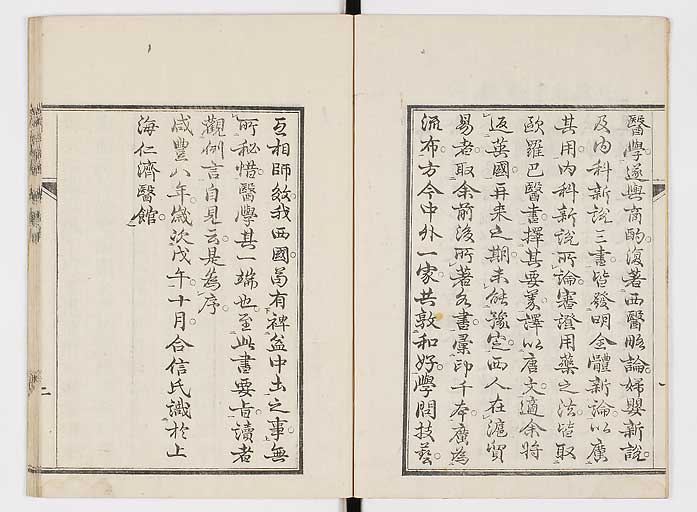 醫學遂與商酌復著西醫略論婦嬰新說
及內科新說三書皆發明全體新論以廣
其用內科新說所論審證用藥之法皆取
歐羅巴醫書擇其要義譯以唐文適余將
返英國再來之期未能豫定西人在滬貿
易者取余前後所著各書彙印千本廣為
流布方今中外一家共敦和好學問技藝
互相師效我西國苟有裨益中土之事無
所秘惜醫學其一端也至此書要旨讀者
觀例言自見云是為序
咸豐八年歲次戊午十月合信氏識於上
海仁濟醫館
二